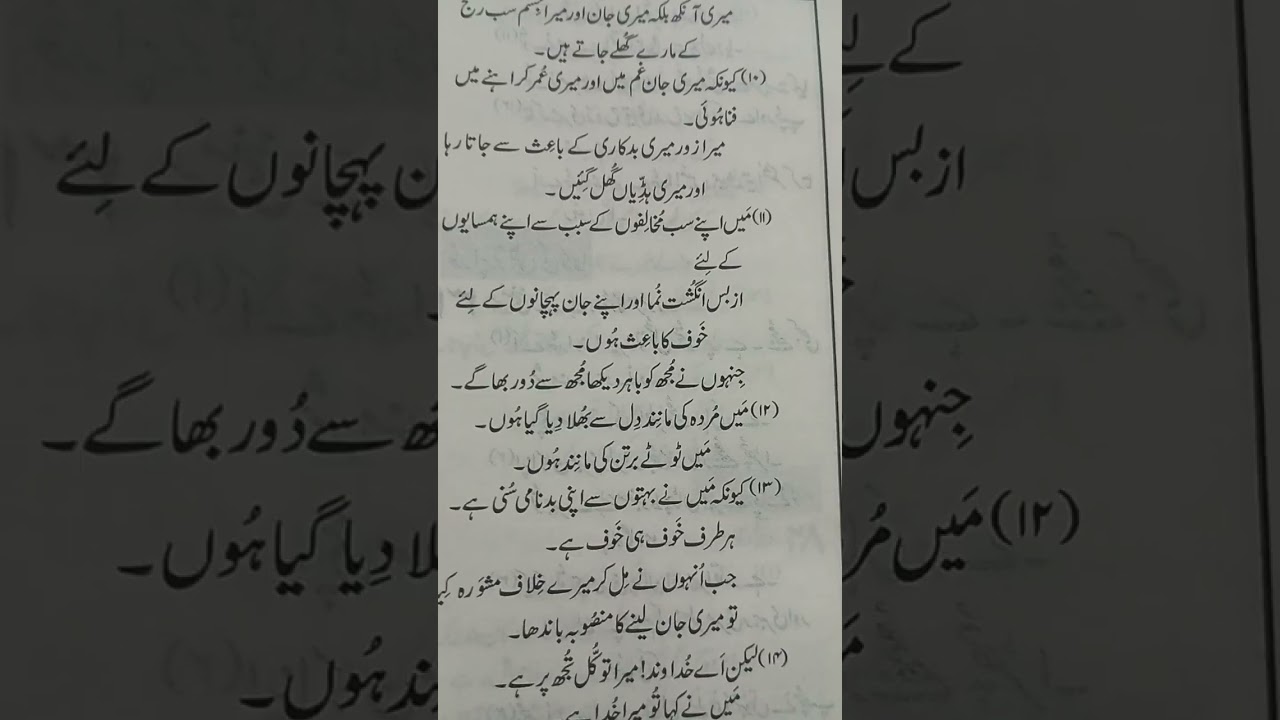 میری آنکھ بلکہ میری جان اور میرا جسم سب رنج
کے مارے گُھلے جاتے ہیں۔
(۱۰) کیونکہ میری جان غم میں اور میری عُمر کراہنے میں
فنا ہُوئی۔
میرا زور میری بدکاری کے باعِث سے جاتا رہا
اور میری ہڈِّیاں گُھل گئِیں۔
(۱۱) مَیں اپنے سب مُخالِفوں کے سبب سے اپنے ہمسایوں
کے لِئے
ازبس انگُشت نُما اور اپنے جان پہچانوں کے لِئے
خَوف کا باعِث ہُوں۔
جِنہوں نے مُجھ کو باہر دیکھا مُجھ سے دُور بھاگے۔
(۱۲) مَیں مُردہ کی مانِند دِل سے بُھلا دِیا گیا ہُوں۔
مَیں ٹوٹے برتن کی مانِند ہُوں۔
(۱۳) کیونکہ مَیں نے بہتوں سے اپنی بدنامی سُنی ہے۔
ہر طرف خَوف ہی خَوف ہے۔
جب اُنہوں نے مِل کر میرے خِلاف مشوَرہ کِیا
تو میری جان لینے کا منصُوبہ باندھا۔
(۱۴) لیکن اَے خُداوند! میرا توکُّل تُجھ پر ہے۔
مَیں نے کہا تُو میرا خُدا ہے